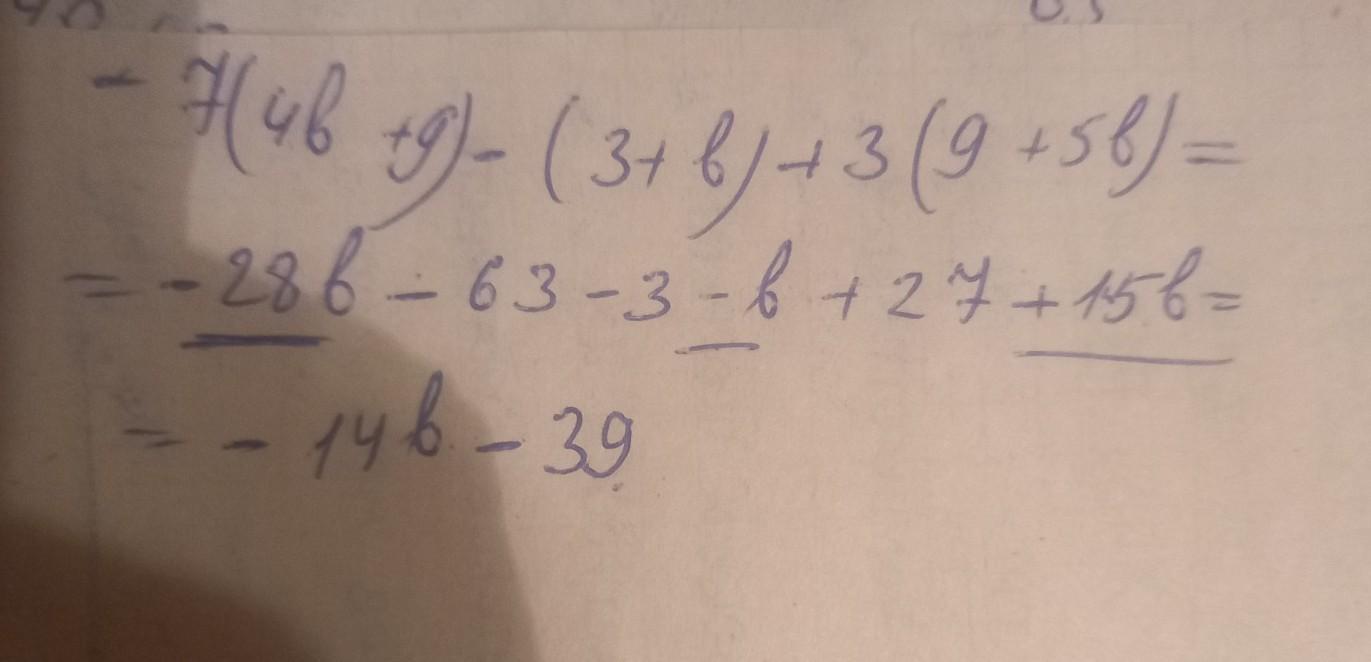 - 7(4b +9) - (3+ b) + 3(9 +5b) =
= - 28b - 63 - 3 - b + 27 + 15b =
= - 14b - 39